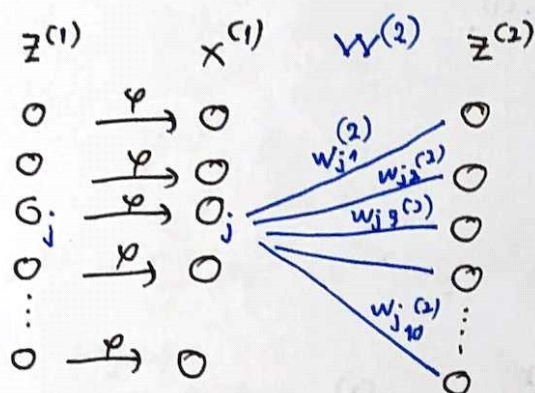 z⁽¹⁾ x⁽¹⁾ W⁽²⁾ z⁽²⁾
φ
φ
φ
j j
φ
φ
w_{j1}⁽²⁾
w_{j2}⁽²⁾
w_{j3}⁽²⁾
w_{j10}⁽²⁾